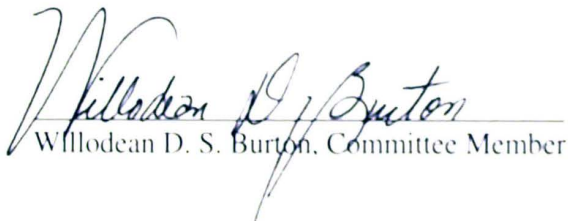 Willodean D. S. Burton
Willodean D. S. Burton, Committee Member